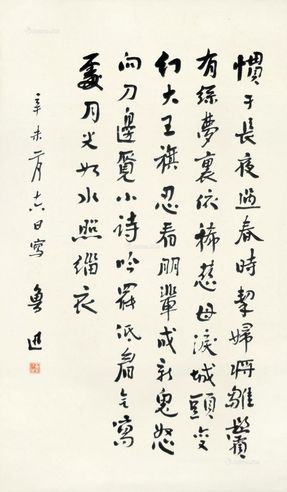 慣于長夜過春時挈婦將雛鬢
有絲夢裏依稀慈母淚城頭變
幻大王旗忍看朋輩成新鬼怒
向刀邊覓小詩吟罷低眉無寫
處月光如水照緇衣
辛未二月十六日寫 魯迅